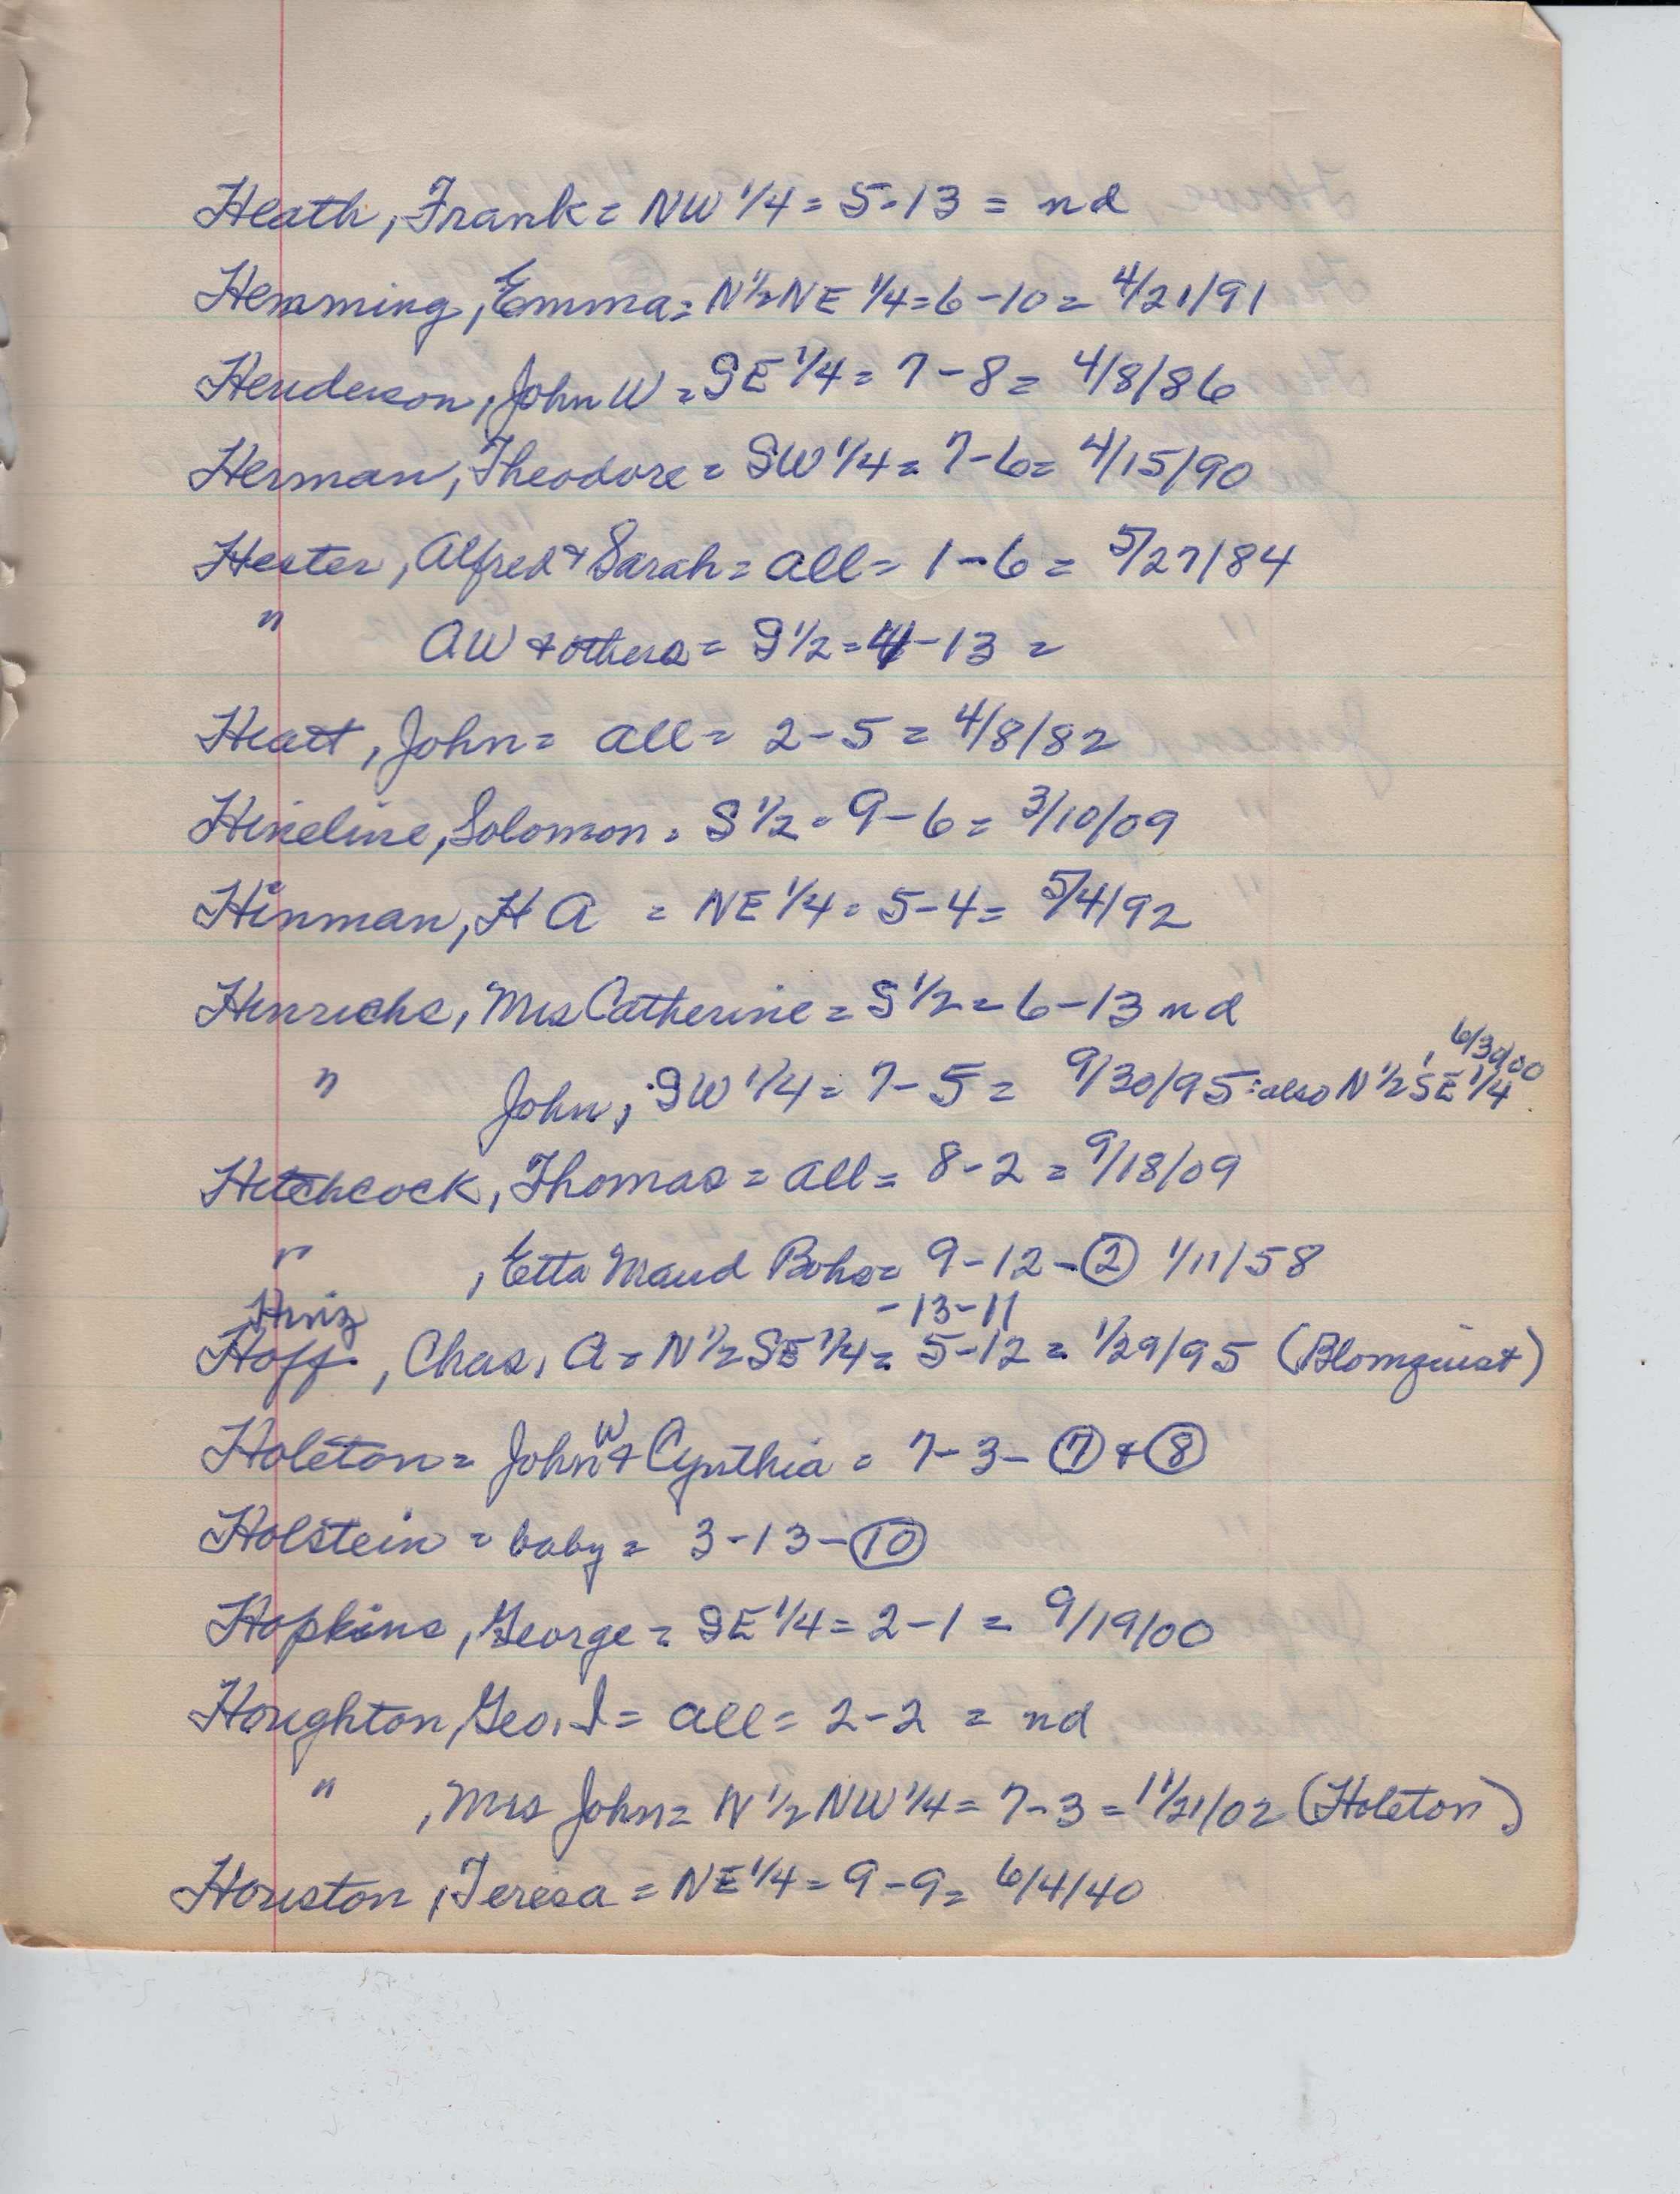 Heath, Frank = NW 1/4 = 5-13 = nd
Hemming, Emma = N 1/2 NE 1/4 = 6-10 = 4/21/91
Henderson, John W = SE 1/4 = 7-8 = 4/8/86
Herman, Theodore = SW 1/4 = 7-6 = 4/15/90
Hester, Alfred & Sarah = all = 1-6 = 5/27/84
" AW & others = S 1/2 = 4-13 =
Hiatt, John = all = 2-5 = 4/8/82
Hineline, Solomon = S 1/2 = 9-6 = 3/10/09
Hinman, H A = NE 1/4 = 5-4 = 5/4/92
Hinrichs, Mrs Catherine = S 1/2 = 6-13 nd
6/30/00
" John, SW 1/4 = 7-5 = 9/30/95 : also N 1/2 SE 1/4
Hitchcock, Thomas = all = 8-2 = 9/18/09
" , Etta Maud Boho = 9-12-② 1/11/58
Hiniz -13-11
Hoff, Chas, A = N 1/2 SE 1/4 = 5-12 = 1/29/95 (Blomquist)
Holeton = John W & Cynthia = 7-3-⑦ & ⑧
Holstein = baby = 3-13-⑩
Hopkins, George = SE 1/4 = 2-1 = 9/19/00
Houghton, Geo. I = all = 2-2 = nd
" , Mrs John = N 1/2 NW 1/4 = 7-3 = 11/21/02 (Holeton)
Houston, Teresa = NE 1/4 = 9-9 = 6/4/40